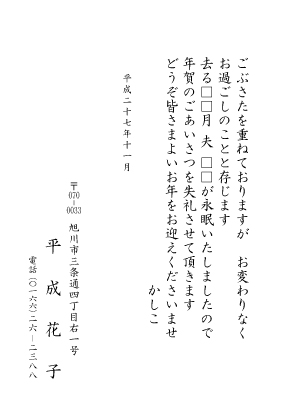 ごぶさたを重ねておりますが　お変わりなく
お過ごしのことと存じます
去る□□月 夫 □□が永眠いたしましたので
年賀のごあいさつを失礼させて頂きます
どうぞ皆さまよいお年をお迎えくださいませ
かしこ
平成二十七年十一月
〒070-0033
旭川市三条通四丁目右一号
平成花子
電話(〇一六六)二六－二三八八